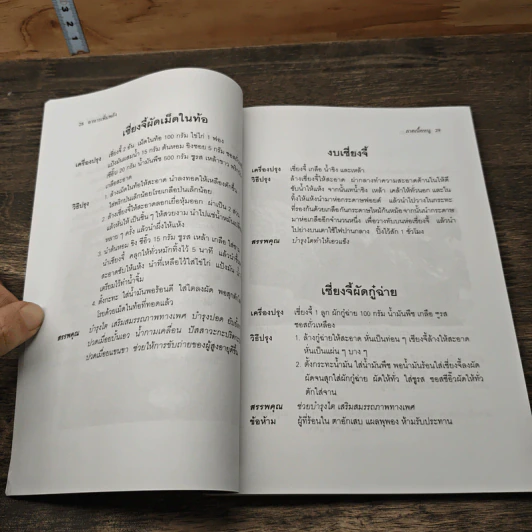 28 อาหารเพิ่มพลัง
เซี่ยงจี้ผัดเม็ดในท้อ
เครื่องปรุง เซี่ยงจี้ 2 อัน, เม็ดในท้อ 100 กรัม ไข่ไก่ 1 ฟอง
แป้งมันผสมน้ำ 15 กรัม ต้นหอม ขิงซอย 5 กรัม
ซีอิ๊ว 20 กรัม น้ำมันพืช 500 กรัม ชูรส เหล้าขาว
เกลือ
วิธีปรุง 1. ล้างเม็ดในท้อให้สะอาด นำลงทอดให้เหลือง
ใส่พริกป่นเล็กน้อยโรยเกลือป่นเล็กน้อย
2. ล้างเซี่ยงจี้ให้สะอาดลอกเยื่อหุ้มออก ผ่าเป็น 2
แล้วหั่นให้เป็นชิ้น ๆ ให้สวยงาม นำไปแช่น้ำ
หลาย ๆ ครั้ง แล้วผึ่งให้แห้ง
3. นำต้นหอม ขิง ซีอิ๊ว 15 กรัม ชูรส เหล้า เกลือ
นำเซี่ยงจี้ คลุกให้ทั่วหมักทิ้งไว้ 5 นาที แล้วนำ
สะอาดซับให้แห้ง นำที่เหลือไว้ใส่ไข่ไก่ แป้งมัน
เตรียมไว้ทำน้ำจิ้ม
4. ตั้งกระทะ ใส่น้ำมันพอร้อนดี ใส่ไตลงผัด พอสุก
โรยด้วยเม็ดในท้อที่ทอดแล้ว
สรรพคุณ บำรุงไต เสริมสมรรถภาพทางเพศ บำรุงปอด
ปวดเมื่อยบั้นเอว น้ำกามเคลื่อน ปัสสาวะกะปริด
ปวดเมื่อยแขนขา ช่วยให้การขับถ่ายของผู้สูงอายุดีขึ้น
29
งบเซี่ยงจี้
เครื่องปรุง เซี่ยงจี้ เกลือ น้ำขิง และเหล้า
วิธีปรุง ล้างเซี่ยงจี้ให้สะอาด ผ่ากลางทำความสะอาดด้านในให้ดี
ซับน้ำให้แห้ง จากนั้นเทน้ำขิง เหล้า เคล้าให้ทั่วนอก และใน
ทิ้งให้แห้งนำมาห่อกระดาษฟอยด์ แล้วนำไปวางในกระทะ
ที่รองก้นด้วยเกลือก้นกระดาษใหม้ก้นหม้อจากนั้นนำกระดาษ
มาห่อเกลืออีกจำนวนหนึ่ง เพื่อวางทับบนห่อเซี่ยงจี้ แล้วนำ
ไปย่างบนเตาใช้ไฟปานกลาง ปิ้งไว้สัก 1 ชั่วโมง
สรรพคุณ บำรุงไตทำให้เอวแข็ง
เซี่ยงจี้ผัดกู๋ฉ่าย
เครื่องปรุง เซี่ยงจี้ 1 ลูก ผักกู๋ฉ่าย 100 กรัม น้ำมันพืช เกลือ ชูรส
ซอสถั่วเหลือง
วิธีปรุง 1. ล้างกู๋ฉ่ายให้สะอาด หั่นเป็นท่อน ๆ เซี่ยงจี้ล้างให้สะอาด
หั่นเป็นแผ่น ๆ บาง ๆ
2. ตั้งกระทะน้ำมัน ใส่น้ำมันพืช พอน้ำมันร้อนใส่เซี่ยงจี้ลงผัด
ผัดจนสุกใส่ผักกู๋ฉ่าย ผัดให้ทั่ว ใส่ชูรส ซอสซีอิ๊วผัดให้ทั่ว
ตักใส่จาน
สรรพคุณ ช่วยบำรุงไต เสริมสมรรถภาพทางเพศ
ข้อห้าม ผู้ที่ร้อนใน ตาอักเสบ แผลพุพอง ห้ามรับประทาน